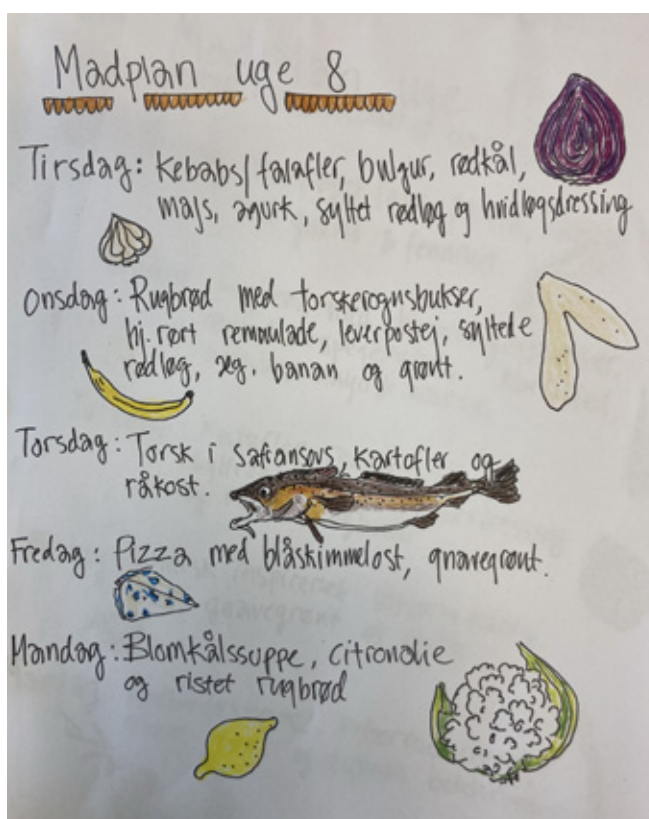 Madplan uge 8
Tirsdag: Kebabs/falafler, bulgur, rødkål,
majs, agurk, syltet rødløg og hvidløgsdressing
Onsdag: Rugbrød med torskerognsbukser,
hj. rørt remoulade, leverpostej, syltede
rødløg, æg. banan og grønt.
Torsdag: Torsk i Safransovs, kartofler og
råkost.
Fredag: Pizza med blåskimmelost, gnavegrønt.
Mandag: Blomkålssuppe, citronolie
og ristet rugbrød